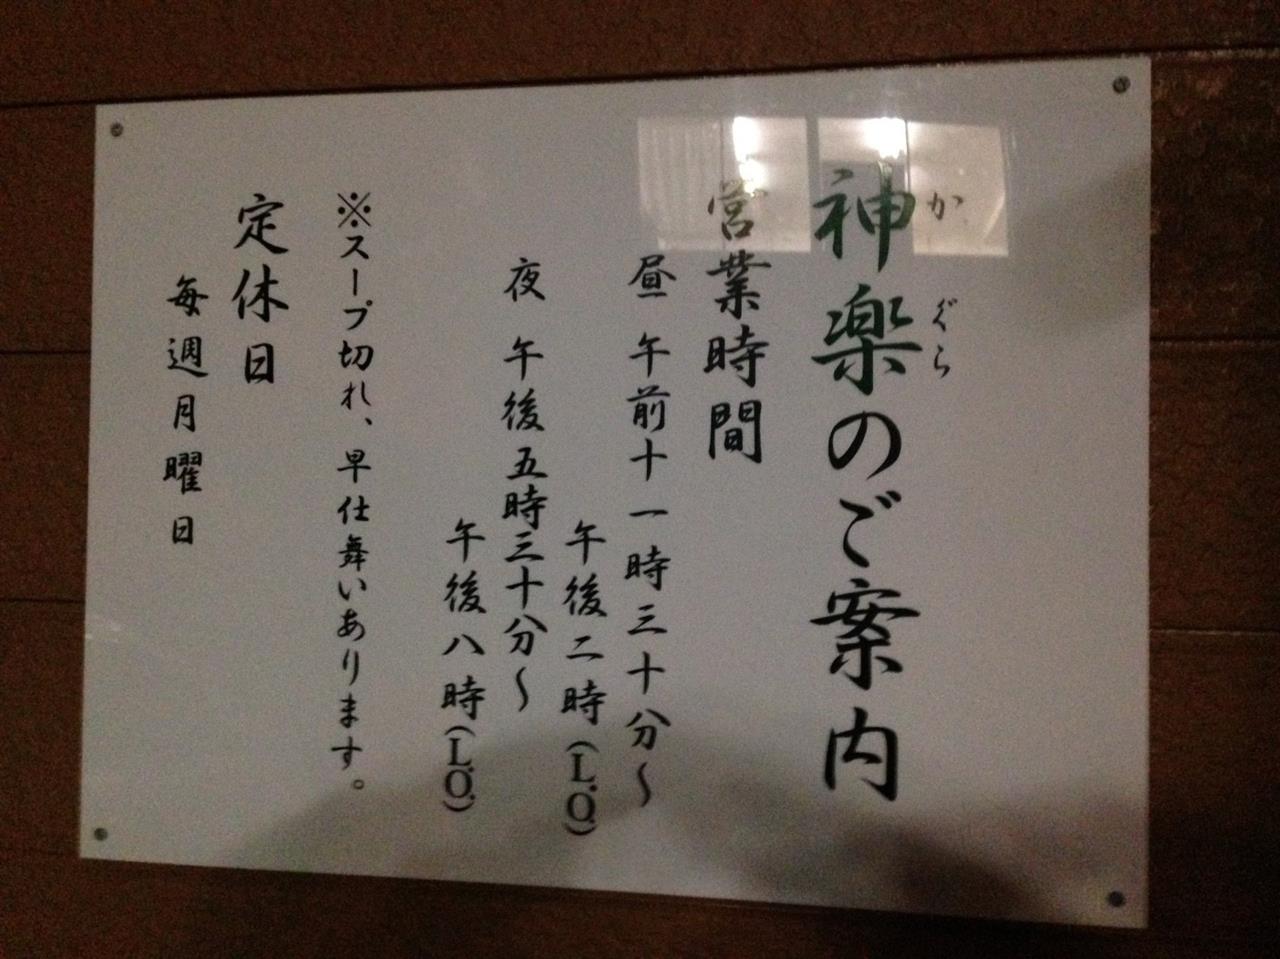 神楽のご案内
かぐら
営業時間
昼 午前十一時三十分〜
午後二時(L.O.)
夜 午後五時三十分〜
午後八時(L.O.)
※スープ切れ、早仕舞いあります。
定休日
毎週月曜日